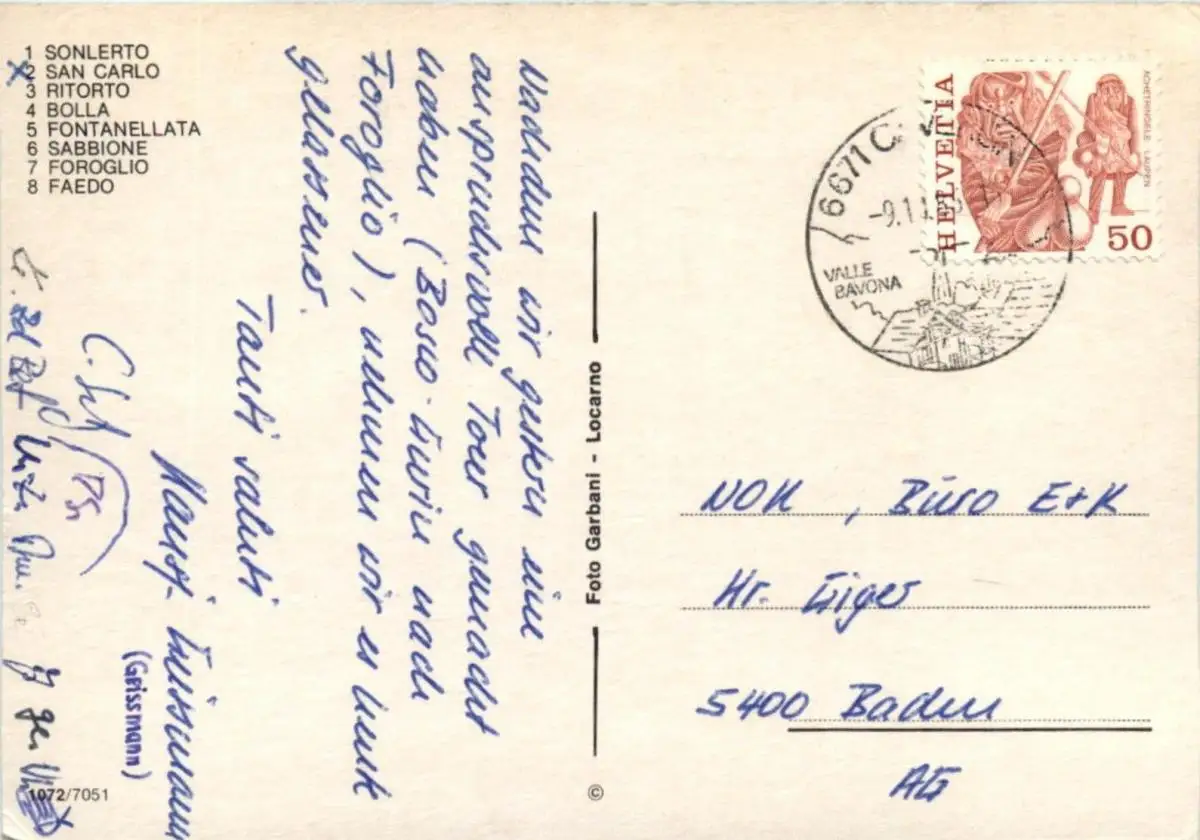 1 SONLERTO
2 SAN CARLO
3 RITORTO
4 BOLLA
5 FONTANELLATA
6 SABBIONE
7 FOROGLIO
8 FAEDO
Nachdem wir gestern eine
anspruchsvolle Tour gemacht
haben (Bosco-Gurin nach
Foroglio), nehmen wir es heute
gelassener.
Tanti saluti
Hansj. Geissmann
(Geissmann)
1072/7051
Foto Garbani - Locarno
©
HELVETIA
ACHETRINGELE LAUPEN
50
6671
-9.1
VALLE
BAVONA
NOK, Büro E+K
Hr. Geiger
5400 Baden
AG